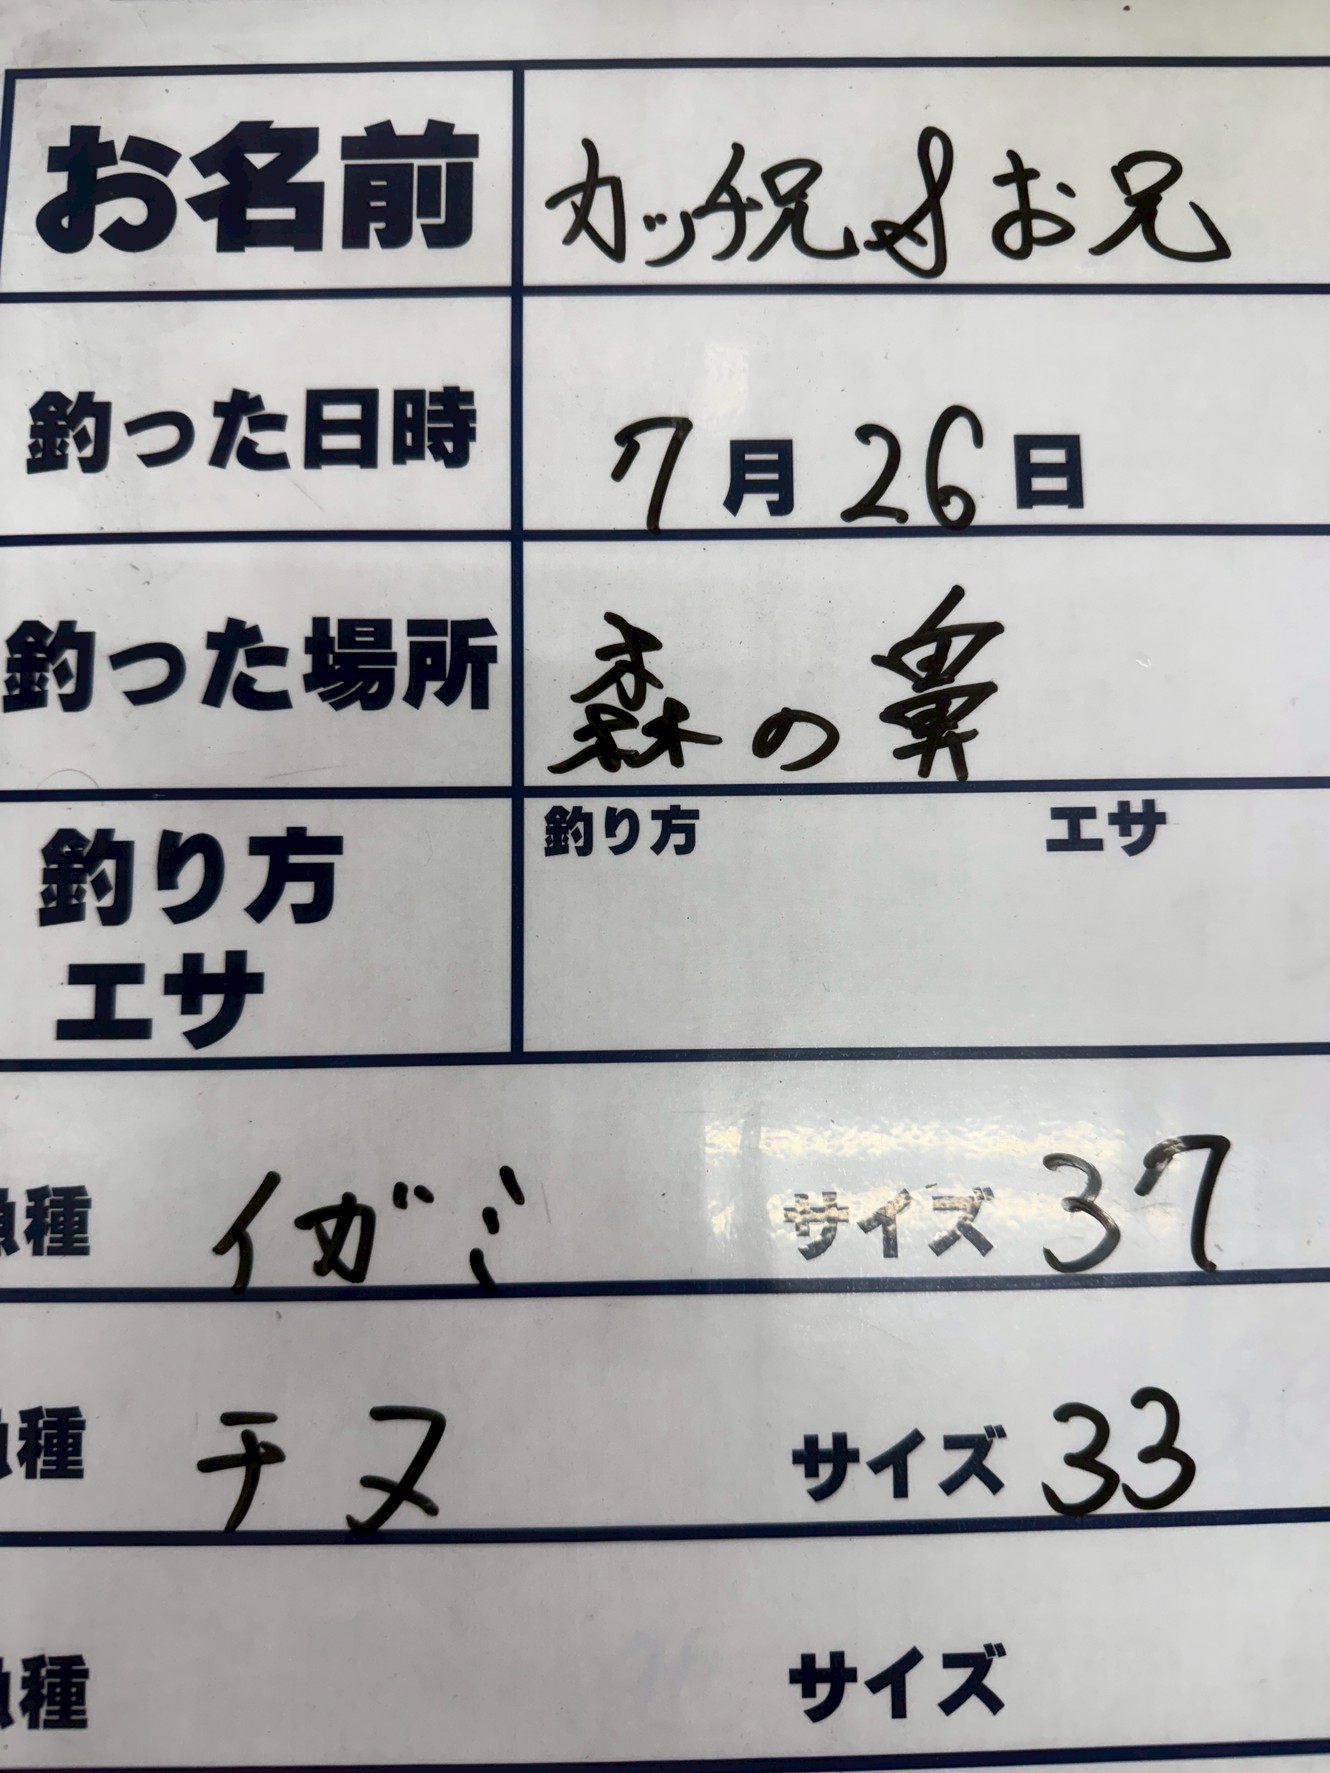 お名前 カッチ兄&お兄
釣った日時 7月26日
釣った場所 森の鼻
釣り方 エサ 釣り方 エサ
魚種 イガミ サイズ 37
魚種 チヌ サイズ 33
魚種 サイズ